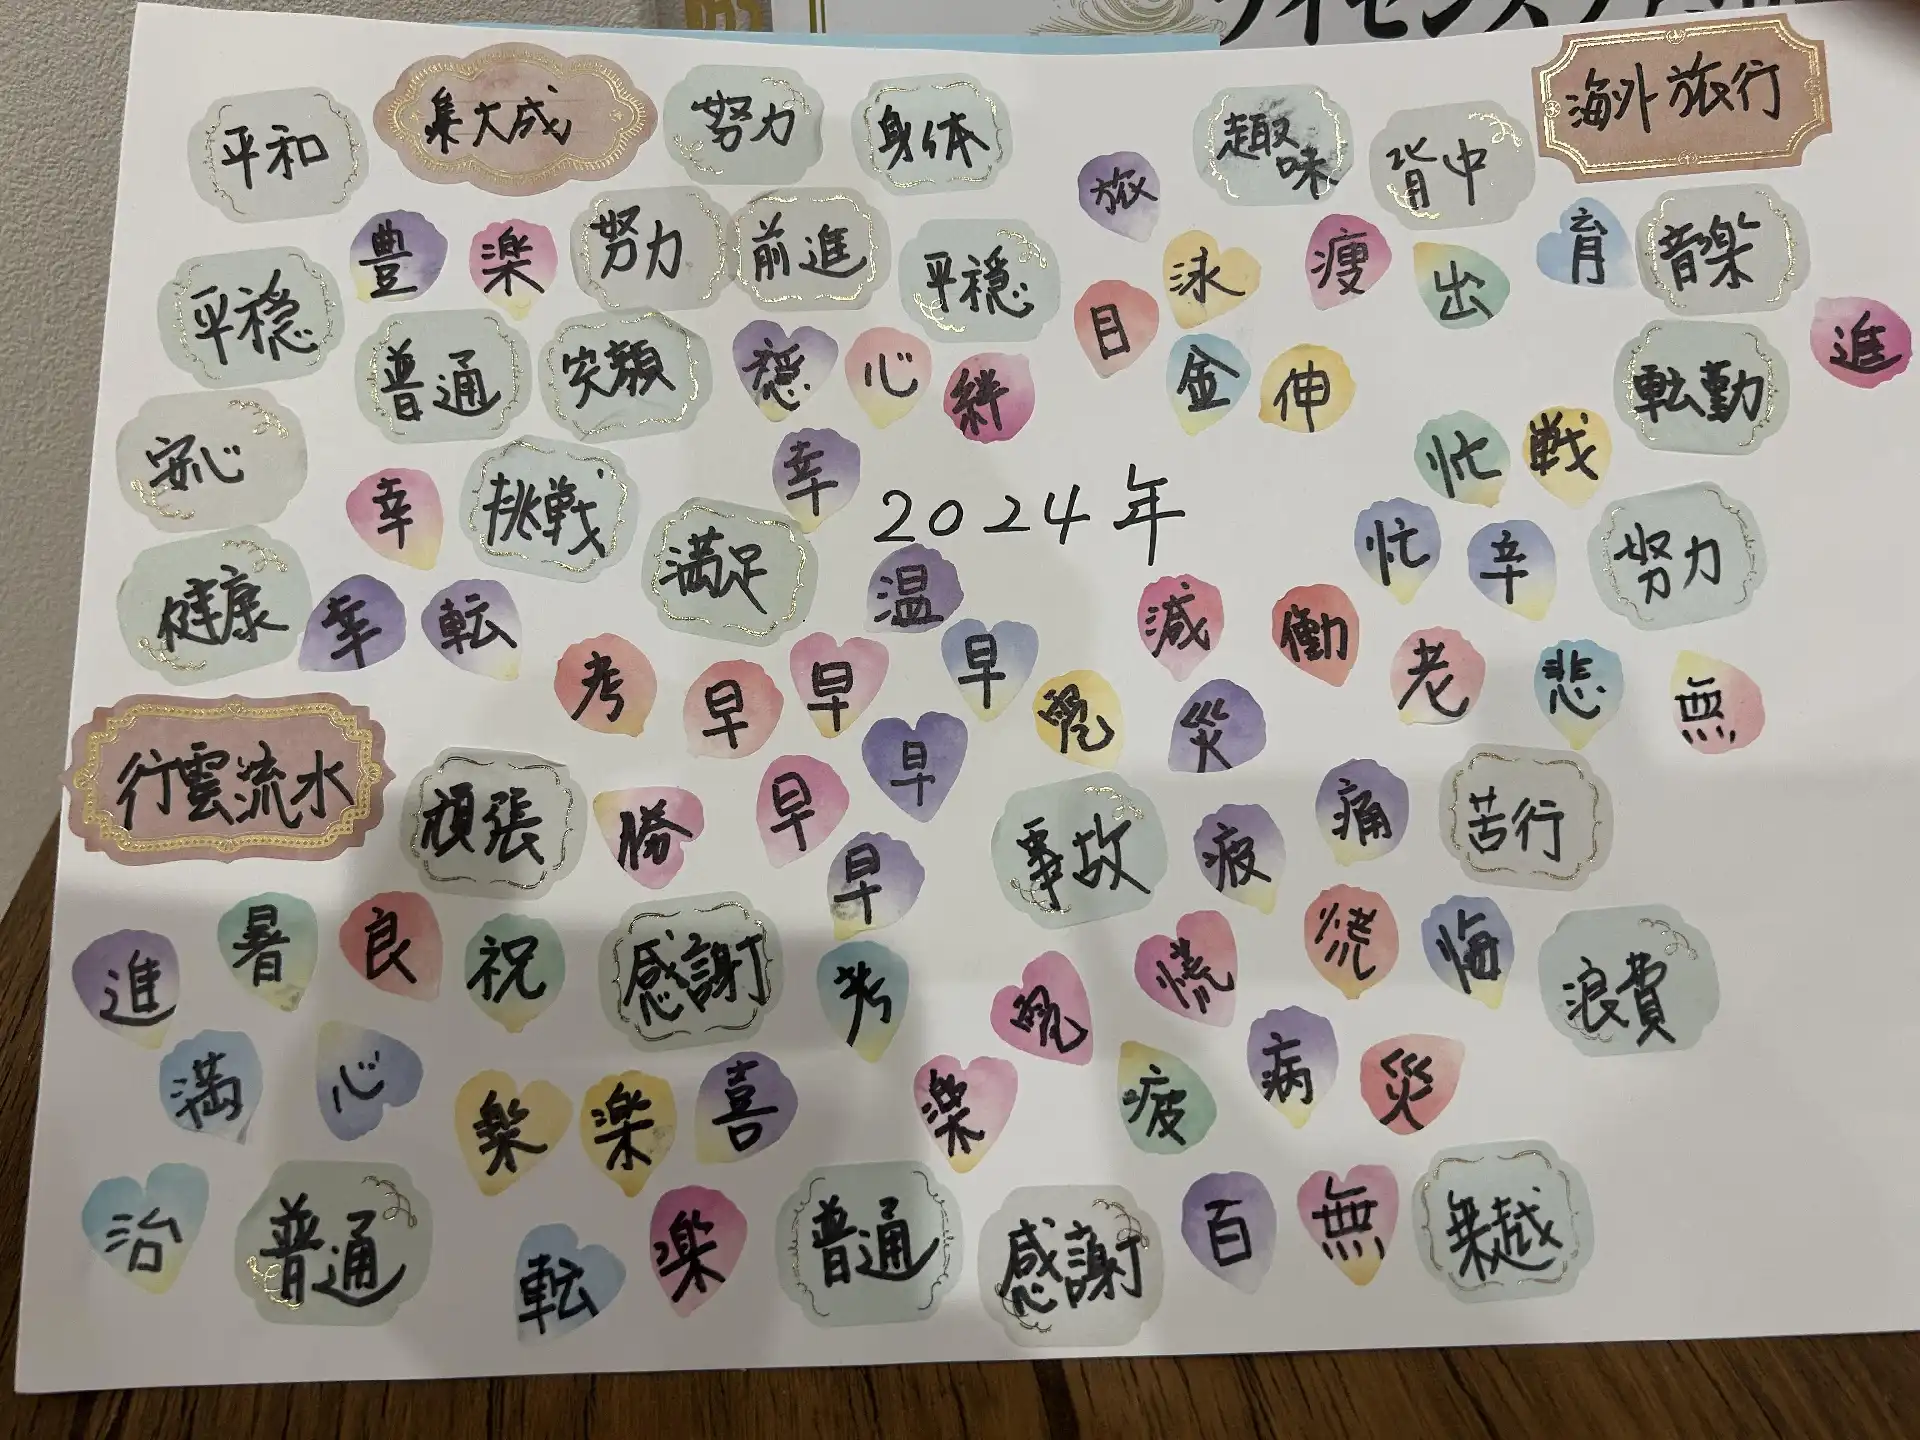 平和
集大成
努力
身体
趣味
背中
海外旅行
旅
豊
楽
努力
前進
平穏
泳
痩
出
育
音楽
平穏
普通
笑顔
穏
心
絆
目
金
伸
転勤
進
安心
幸
挑戦
満足
幸
2024年
忙
戦
忙
辛
努力
健康
幸
転
温
減
働
老
悲
無
考
早
早
早
早
災
行雲流水
頑張
勝
早
早
事故
疲
痛
苦行
進
暑
良
祝
感謝
考
慌
慌
悔
浪費
満
心
楽
楽
喜
楽
疲
病
災
治
普通
転
楽
普通
感謝
百
無